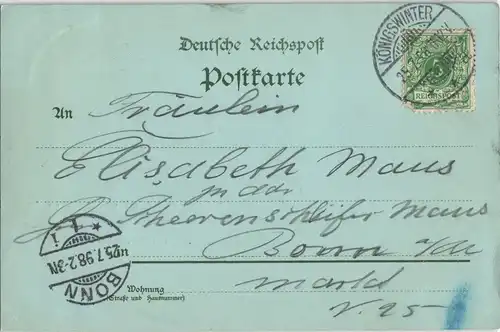 Deutsche Reichspost
Postkarte
KÖNIGSWINTER
REICHSPOST
An Fräulein
Elisabeth Maus
Scheerenschleifer Maus
Bonn a/Rh
Markt
N. 25
25.7.98.2-3N
BONN
Wohnung
(Straße und Hausnummer)